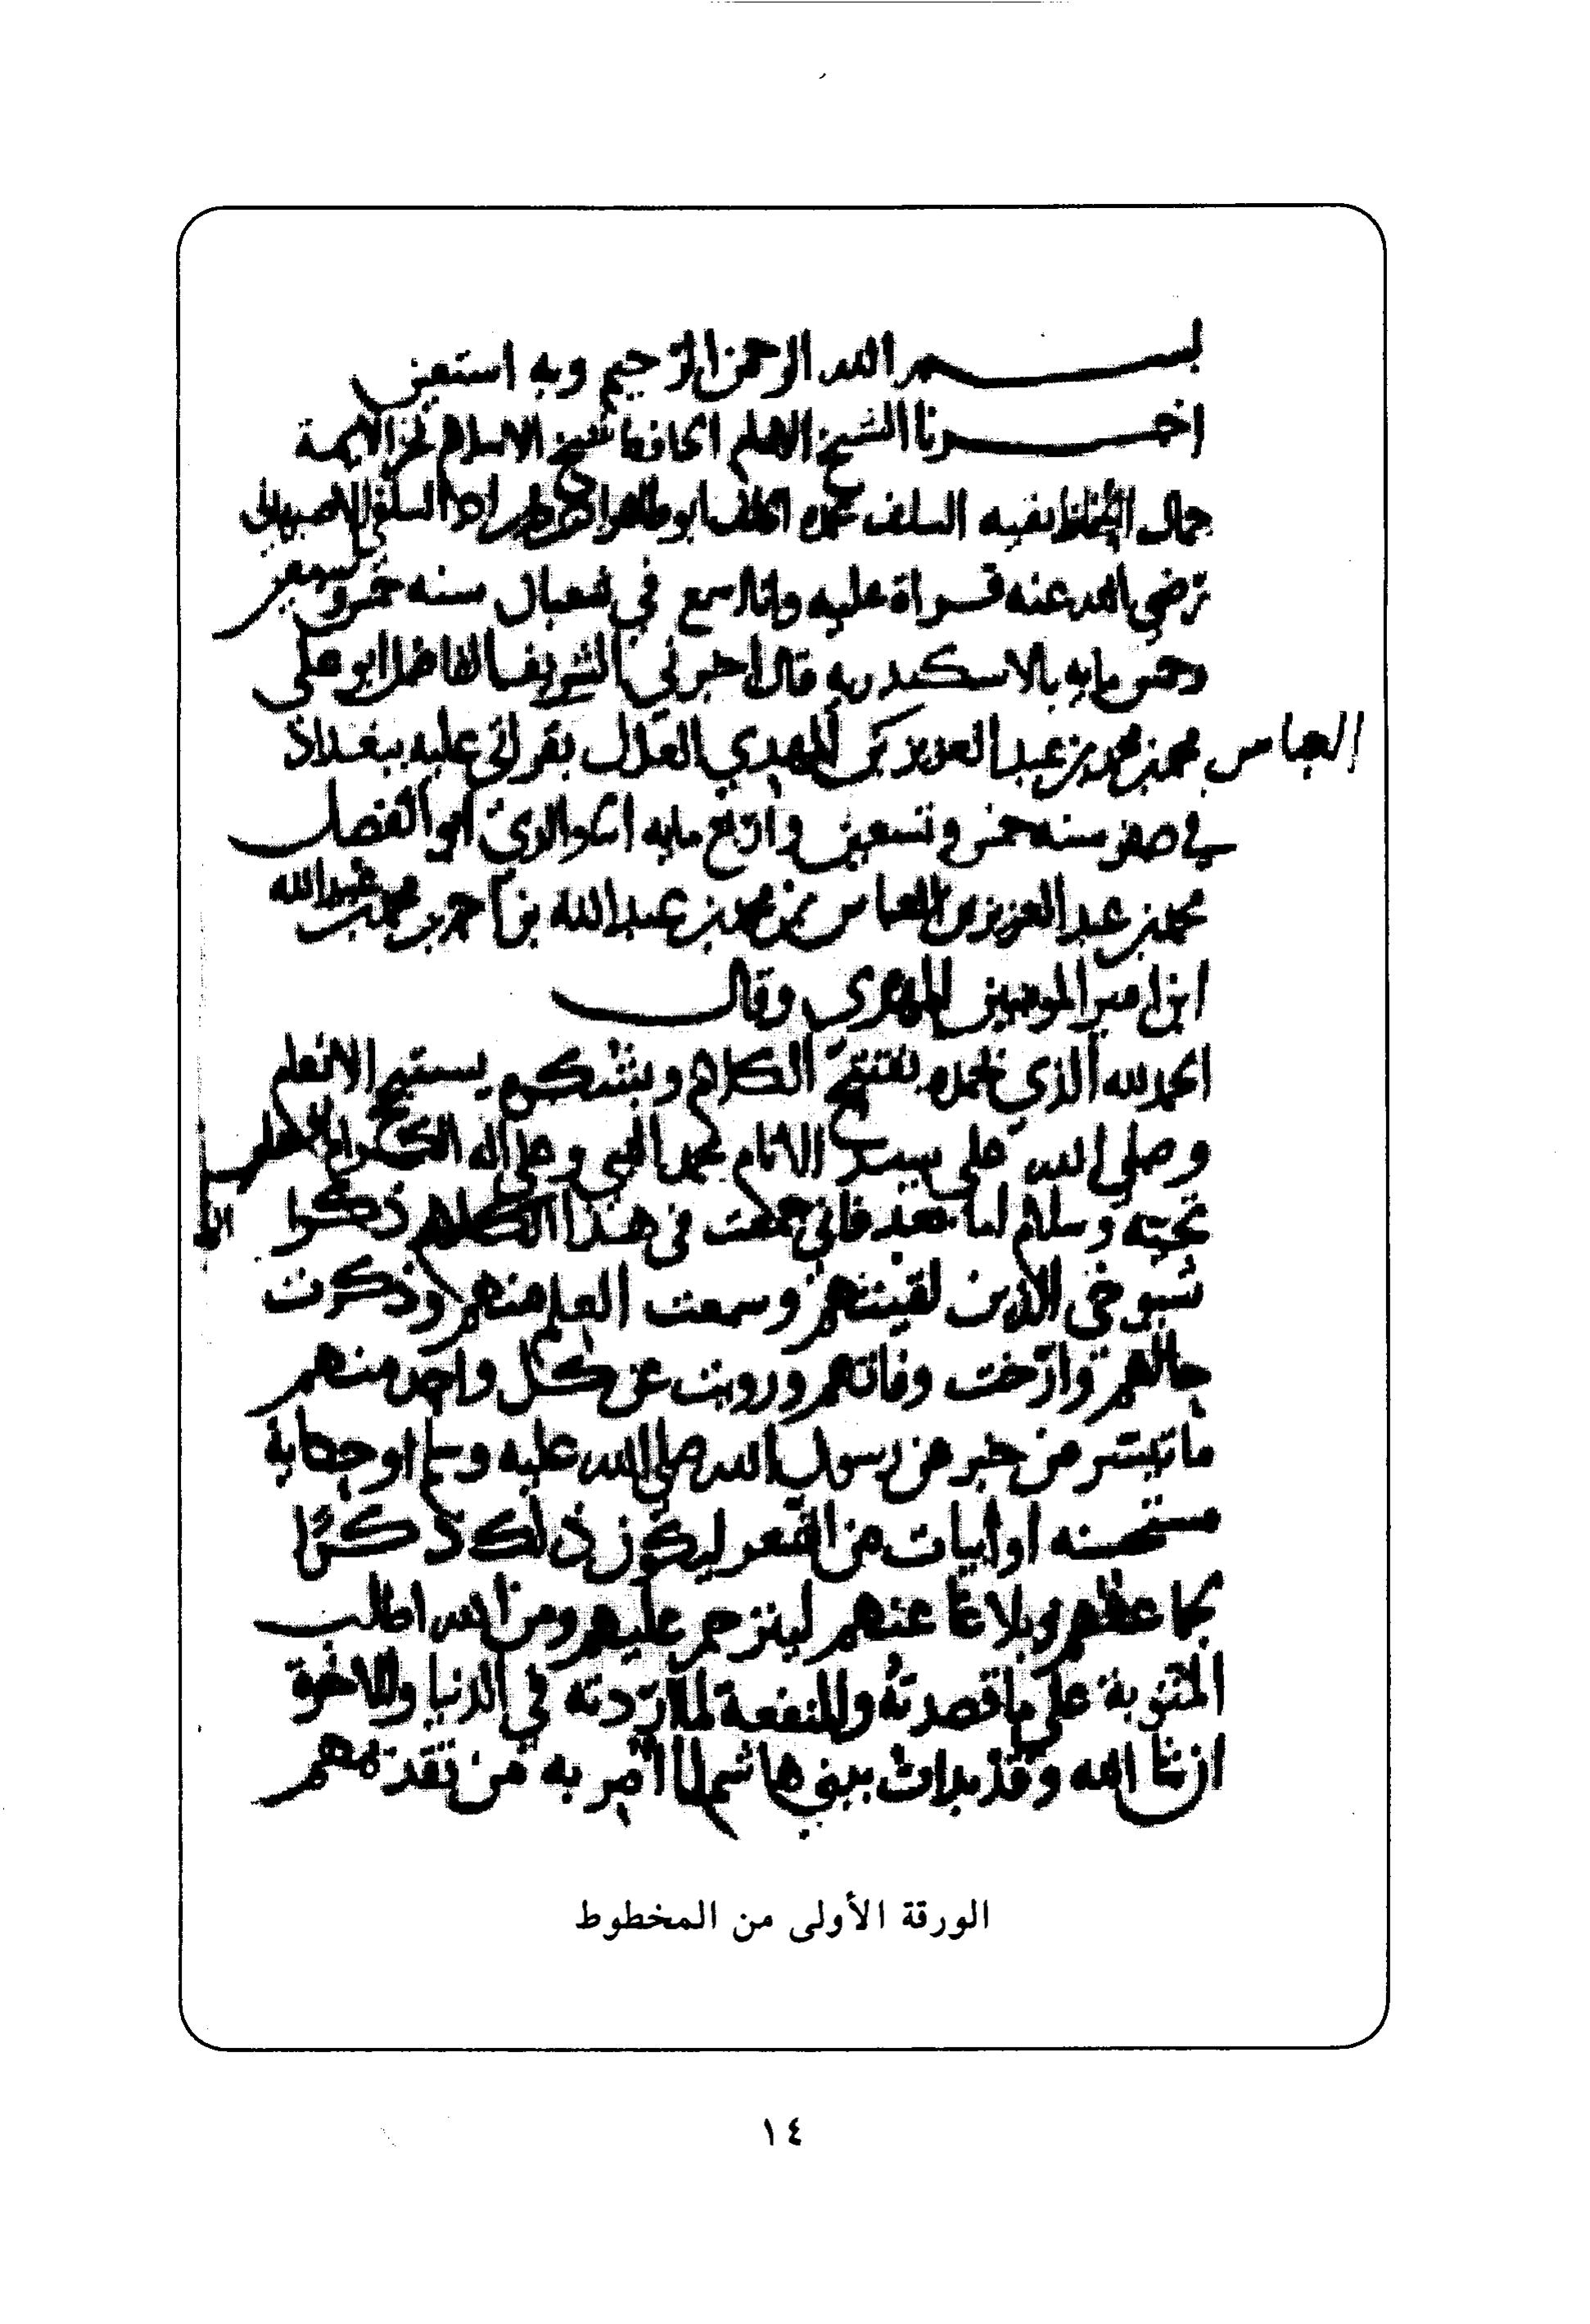 بسم الله الرحمن الرحيم وبه استعين
اخبرنا الشيخ الامام الحافظ شيخ الاسلام فخر الايمة
جمال الحفاظ بقيه السلف عمده الخلف ابو طاهر احمد السلفي الاصبهاني
رضي الله عنه قراة عليه وانا اسمع في شعبان سنه خمس وسبعين
وخمس مايه بالاسكندريه قال اخبرني الشريف الفاضل ابو علي
محمد بن محمد بن عبد العزيز بن العباس المهدي العدل بقراتي عليه ببغداذ
في صفر سنه خمس وتسعين واربع مايه والدي ابو الفضل
محمد بن عبد العزيز بن العباس بن محمد بن عبد الله بن احمد بن محمد بن عبد الله
ابن امير المومنين المهدي وقال
الحمد لله الذي بحمده يفتتح الكلام وبشكره يستتم الانعام
وصلي الله علي سيد الانام محمد النبي وعلى اله الكرام
تحيته وسلام اما بعد فاني جمعت في هذا الكلام ذكر
شيوخي الذين لقيتهم وسمعت العلم منهم وذكرت
حالهم وارخت وفاتهم ورويت عن كل واحد منهم
ما تيسر من خبر عن رسول الله صلي الله عليه وسلم او حكاية
مستحسنه او ابيات من الشعر ليكون ذلك ذكرا
عنهم ليترحم عليهم ومن الله اطلب
المثوبة على ما قصدته والمنفعة لما اردته في الدنيا والاخرة
ان شا الله وقد بدات ببني هاشم لما امر به من تقدمهم
الورقة الأولى من المخطوط
١٤